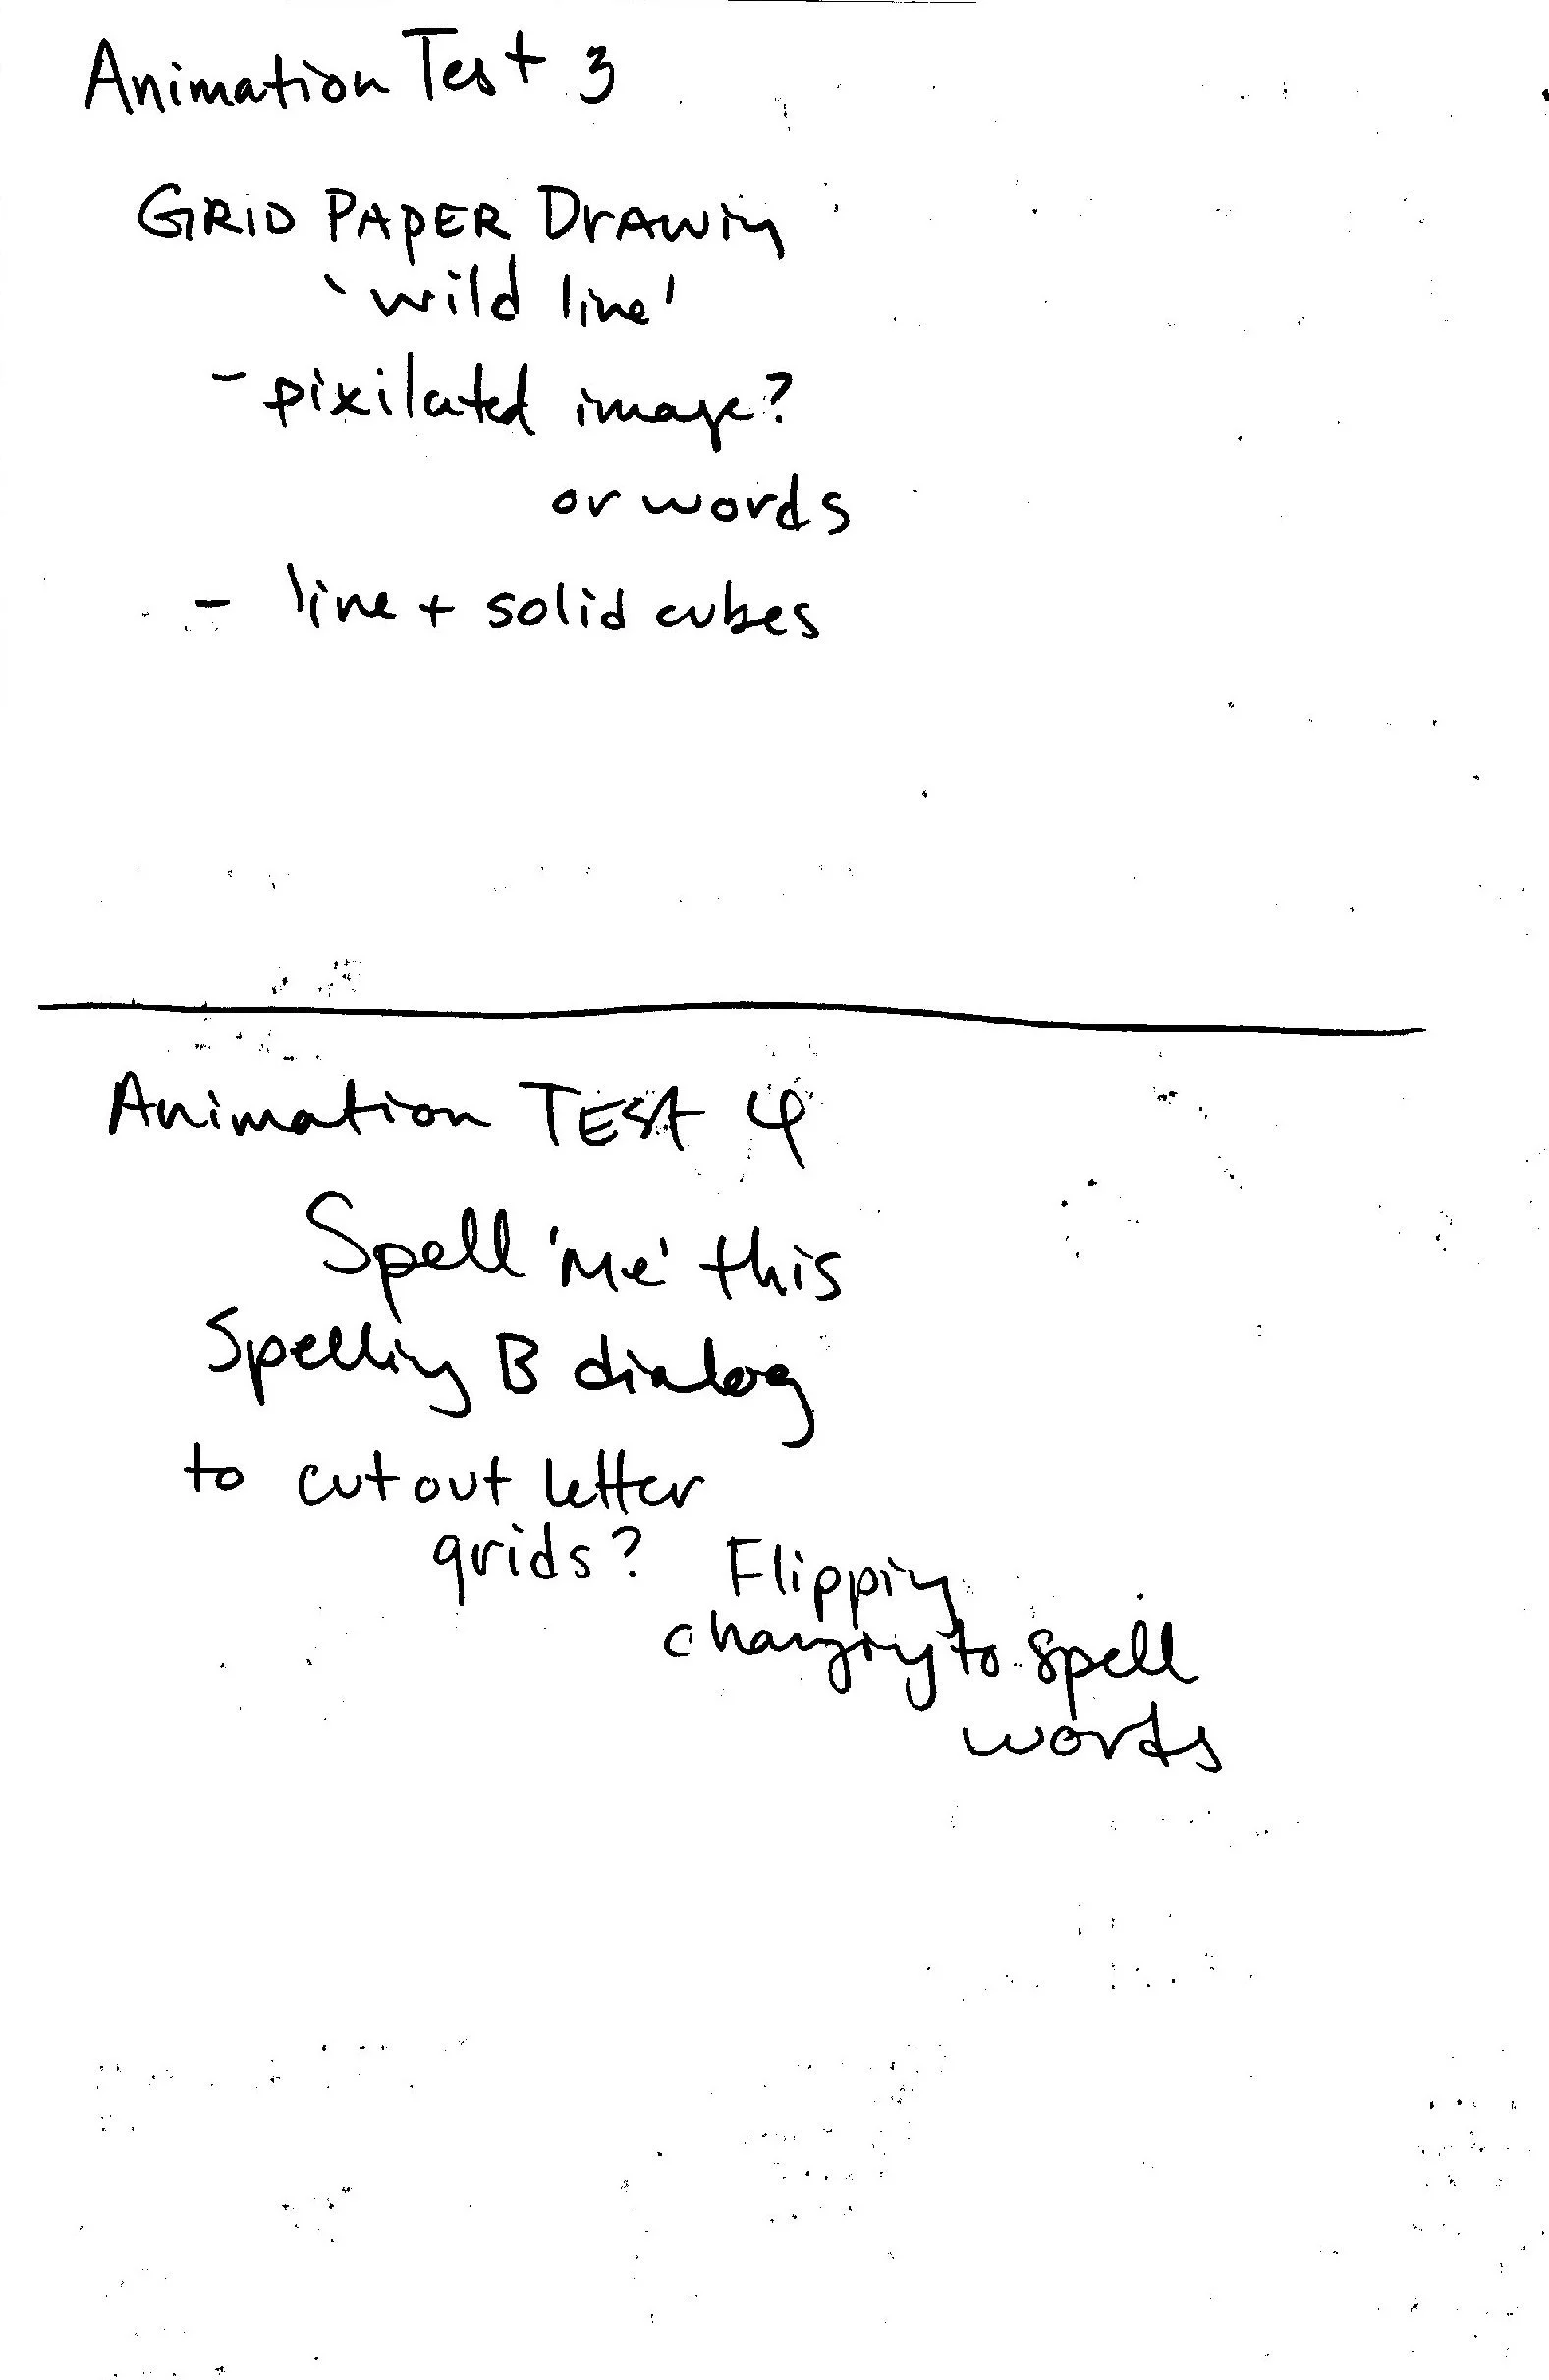 Animation Test 3
GRID PAPER DRAWing
'wild line'
- pixilated image?
or words
- line + solid cubes
Animation TEST 4
Spell 'Me' this
Spelling B dialog
to cut out letter
grids?
Flipping
changing to spell
words